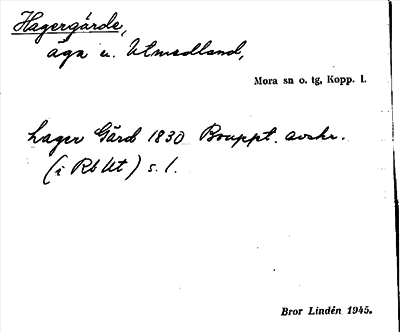 Hagergärde,
äga u. Utmedland,
Mora sn o. tg, Kopp. l.
hager Gård 1830 Bouppt. avskr.
(i Rb Ut) s. 1.
Bror Lindén 1945.